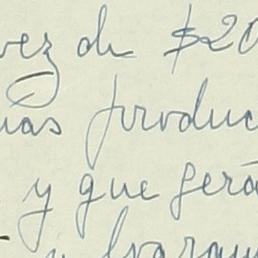 vez de $20
uas produc
y que será